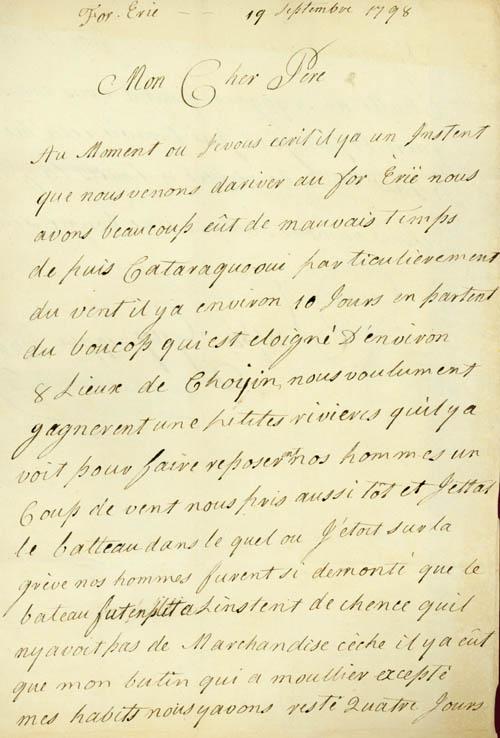 For. Erie — — 19 Septembre 1798
Mon Cher Pere
Au Moment ou Je vous ecrit il ya un Instent
que nous venons dariver au for Èrië nous
avons beaucoup eût de mauvais Temps
de puis Cataraquoui particulierement
du vent il ya environ 10 Jours en partent
du boucop qui est eloigné D'environ
8 Lieux de Choyin, nous voulument
gagnerent une petites rivieres quil ya
voit pour faire reposer nos hommes un
Coup de vent nous pris aussi tôt et Jettat
le batteau dans le quel ou J'etoit sur la
grève nos hommes furent si demonté que le
bateau fut Linstent de chence quil
nyavoit pas de Marchandise cèche il ya eût
que mon butin qui a moullier excepté
mes habits nous yavons resté Quatre Jours